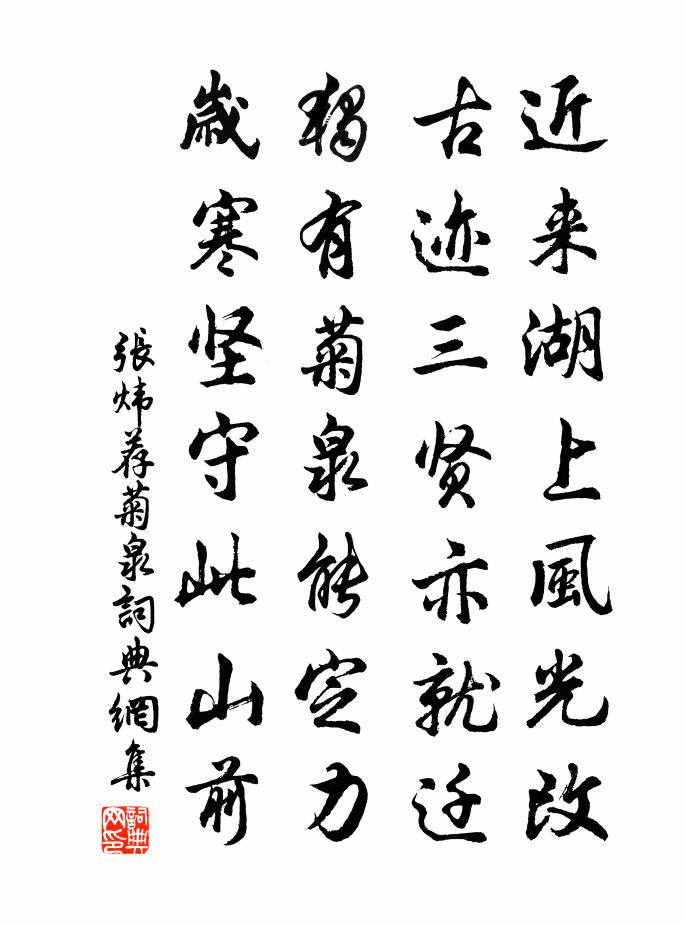 近来湖上風光改
古迹三贤亦就迁
獨有菊泉能定力
歲寒坚守此山前
張炜荐菊泉詞典網集
詞典网印